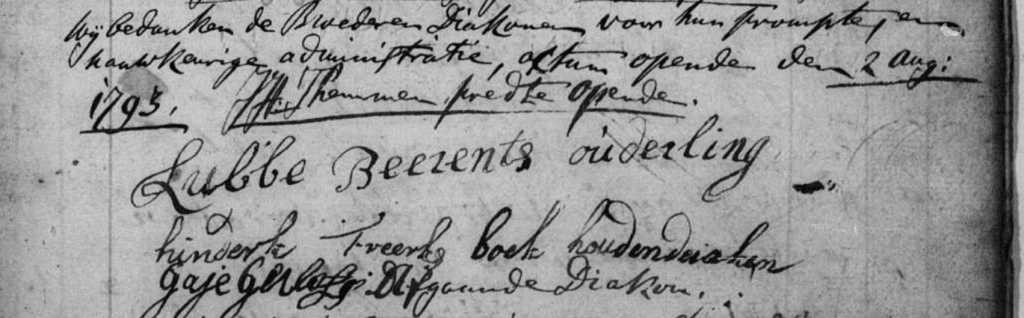 Wij bedanken de Broederen Diakonen voor hun prompte, en
nauwkeurige administratie, actum opende den 2 Aug:
1793. Themmen predte opende.
Lubbe Beerents ouderling
hinderk Freerks boek houdendeiaken
gaje Afgaande Diakon.